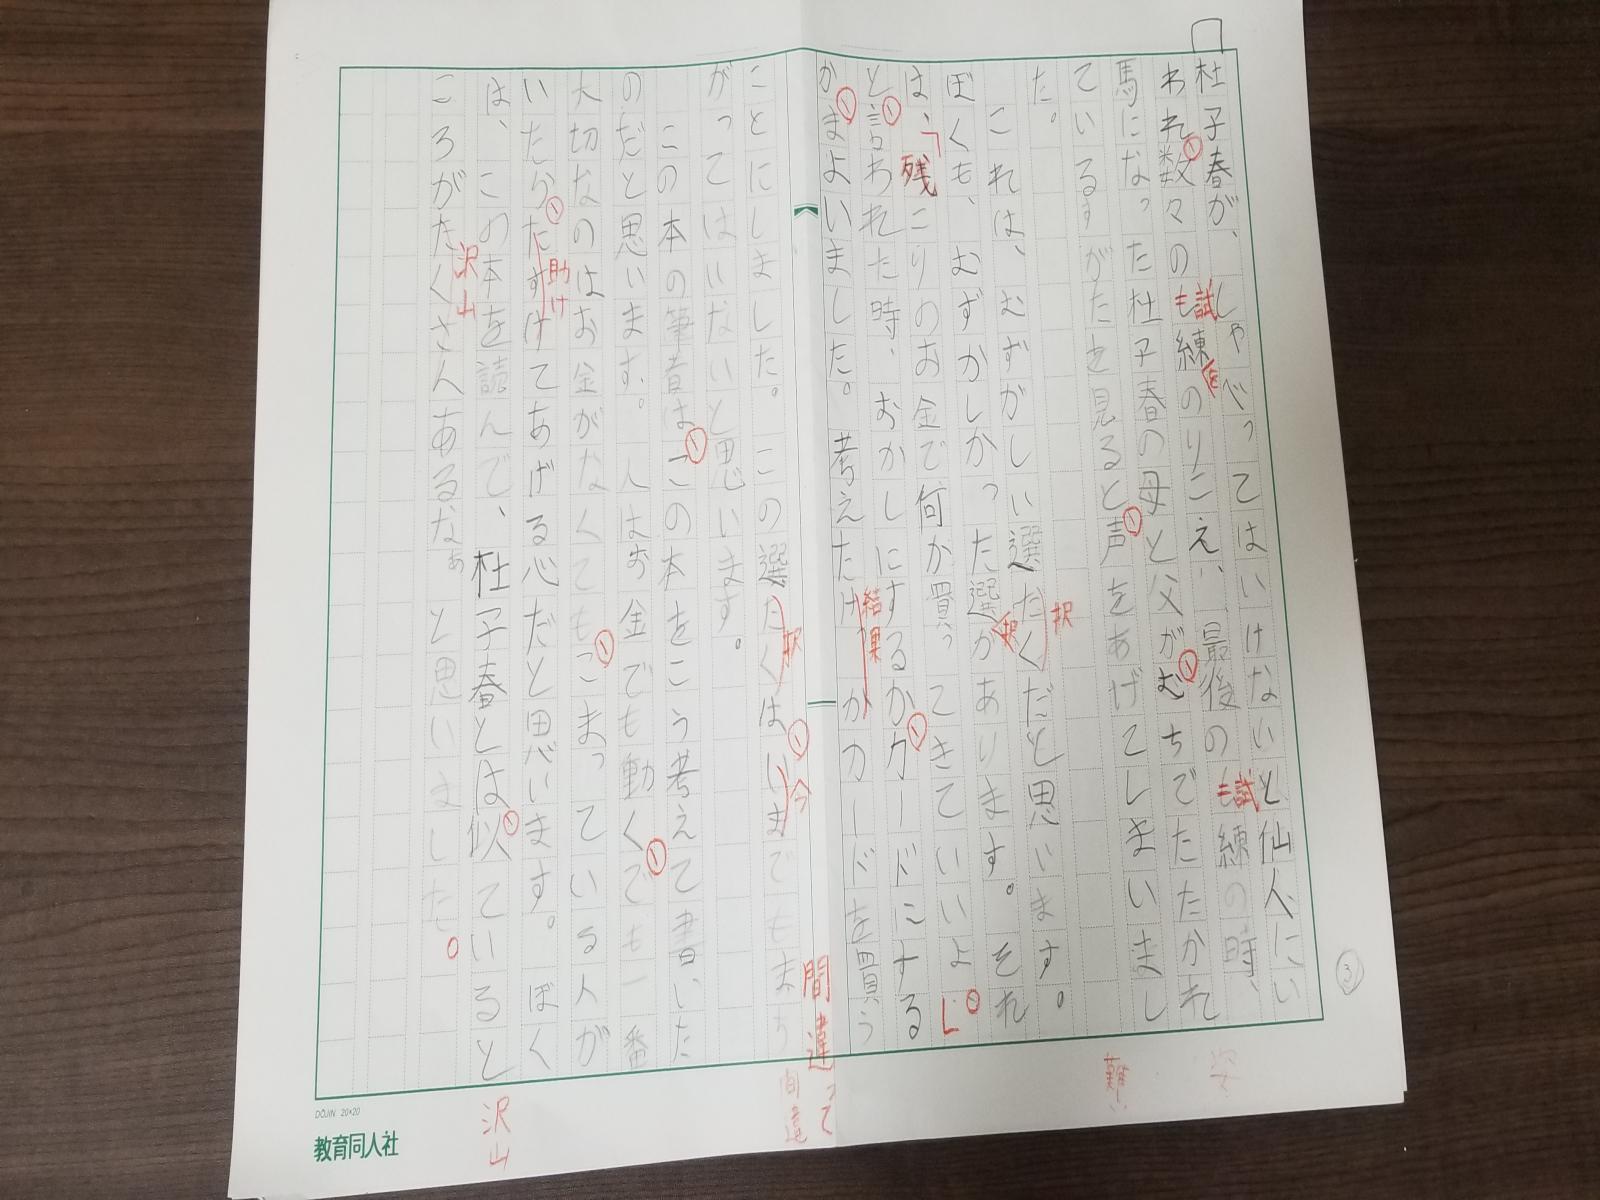 ③
杜子春が、しゃべってはいけないと仙人にい
われ数々のも練のりこえ、最後のも練の時、
試
を
試
馬になった杜子春の母と父がむちでたたかれ
ているすがたを見ると声をあげてしまいまし
た。
これは、むずかしい選たくだと思います。
択
ぼくも、むずかしかった選があります。それ
択
は、「残こりのお金で何か買ってきていいよ」
と言われた時、おかしにするかカードにする
かまよいました。考えたけっかカードを買う
結果
ことにしました。この選たくはいまでもまち
択
今
間違って
間違
がってはいないと思います。
この本の筆者はこの本をこう考えて書いた
のだと思います。人はお金でも動くでも一番
大切なのはお金がなくてもこまっている人が
いたらたすけてあげる心だと思います。ぼく
助け
は、この本を読んで、杜子春とは似ていると
ころがたくさんあるなぁと思いました。
沢山
姿
難い
沢山
DŌJIN 20×20
教育同人社